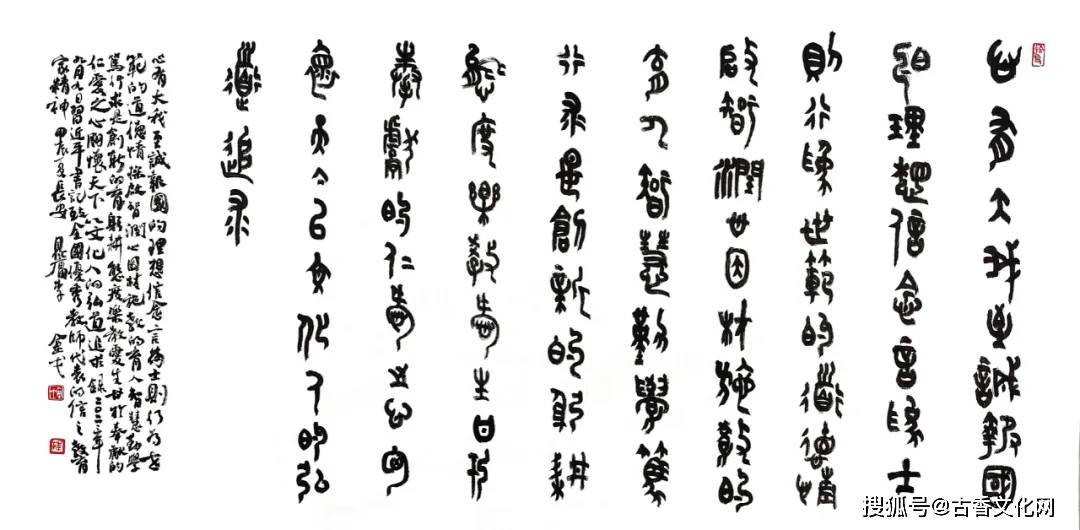 心有大我至誠報國
的理想信念言為士
則行為世範的道德情操
啟智潤心因材施教的
育人智慧勤學篤
行求是創新的躬耕
態度樂教愛生甘於
奉獻的仁愛之心胸
懷天下以文化人的弘
道追求
心有大我至誠報國的理想信念言為士則行為世
範的道德情操啟智潤心因材施教的育人智慧勤學
篤行求是創新的躬耕態度樂教愛生甘於奉獻的
仁愛之心胸懷天下以文化人的弘道追求錄二〇二三年
九月九日習近平書記致全國優秀教師代表的信之教育
家精神 甲辰夏長安 金戈
搜狐号@古香文化网